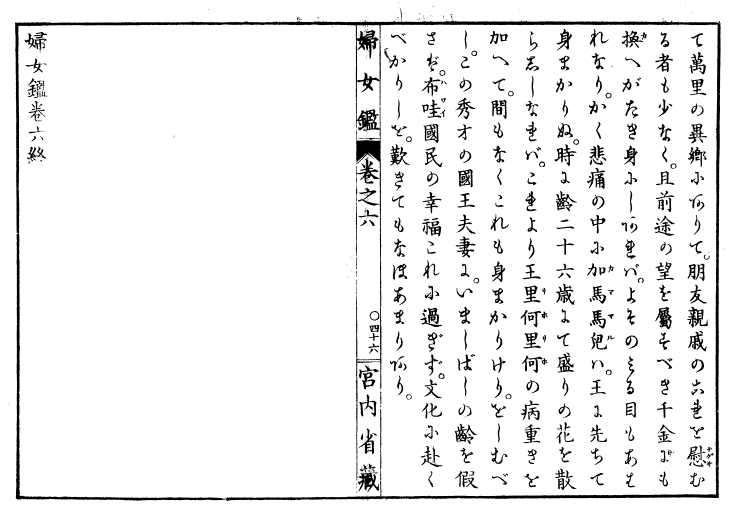 て萬里の異鄕にありて。朋友親戚のこれを慰む
る者も少なく。且前途の望を屬すべき千金にも
換へがたき身にしあれば。よそのみる目もあは
れなり。かく悲痛の中に加馬馬兒は。王に先ちて
身まかりぬ。時に齡二十六歳にて盛りの花を散
らししなれば。これより王里何里何の病重きを
加へて。間もなくこれも身まかりけり。をしむべ
し。この秀才の國王夫妻に。いましばしの齡を假
さば。布哇國民の幸福これに過ぎず。文化に赴く
べかりしを。歎きてもなほあまりあり。
婦女鑑 卷之六 ○四十六 宮内省藏
婦女鑑卷六終